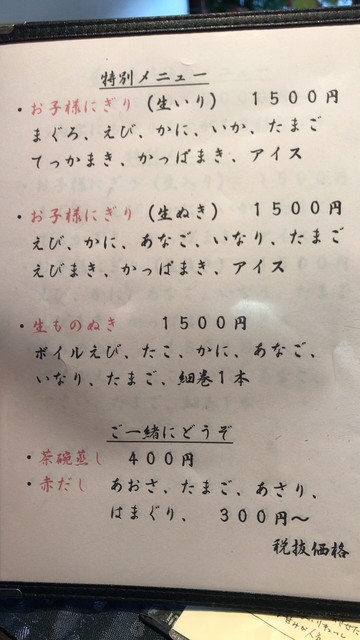 特別メニュー
・お子様にぎり（生いり） １５００円
まぐろ、えび、かに、いか、たまご
てっかまき、かっぱまき、アイス
・お子様にぎり（生ぬき） １５００円
えび、かに、あなご、いなり、たまご
えびまき、かっぱまき、アイス
・生ものぬき １５００円
ボイルえび、たこ、かに、あなご、
いなり、たまご、細巻１本
ご一緒にどうぞ
・茶碗蒸し ４００円
・赤だし あおさ、たまご、あさり、
はまぐり、 ３００円～
税抜価格